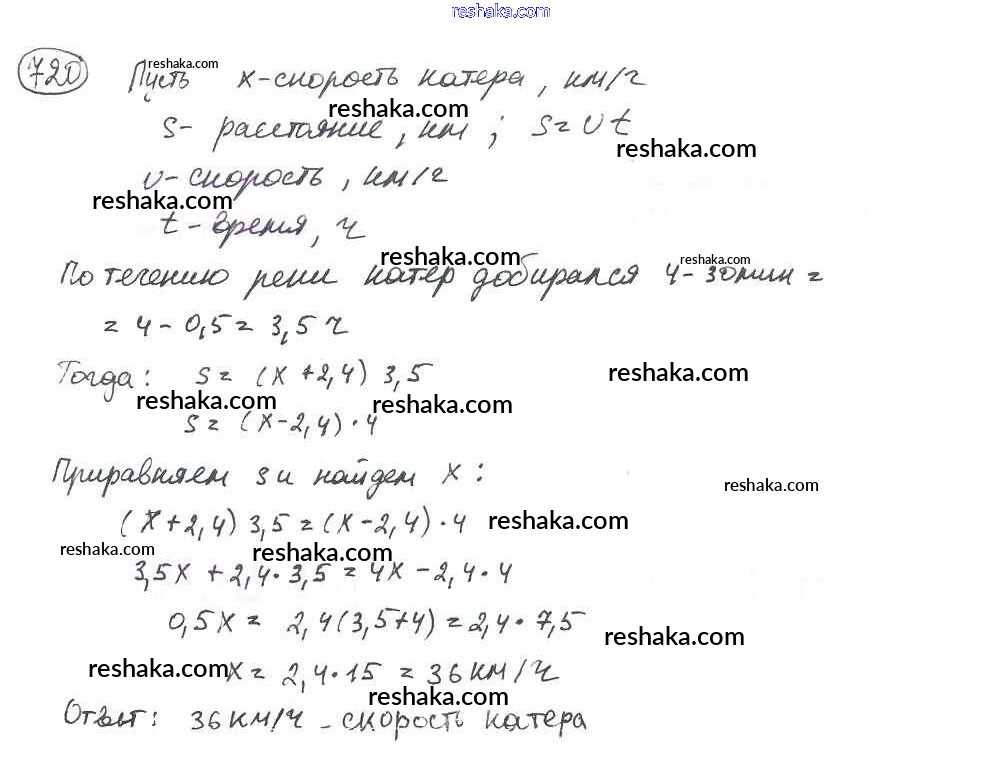 reshaka.com
720 Пусть x-скорость катера, км/ч
reshaka.com
reshaka.com
s- расстояние, км; s=vt
reshaka.com
v-скорость, км/ч
reshaka.com
t-время, ч
reshaka.com
reshaka.com
По течению реки катер добирался 4-30мин =
= 4-0,5= 3,5 ч
Тогда: s= (x+2,4) 3,5
reshaka.com
reshaka.com
reshaka.com
s= (x-2,4)·4
Приравняем s и найдем x:
reshaka.com
(x+2,4) 3,5=(x-2,4)·4
reshaka.com
reshaka.com
reshaka.com
3,5x+2,4·3,5=4x-2,4·4
0,5x= 2,4(3,5+4)=2,4·7,5
reshaka.com
reshaka.com
x= 2,4·15 =36км/ч
reshaka.com
Ответ: 36км/ч-скорость катера